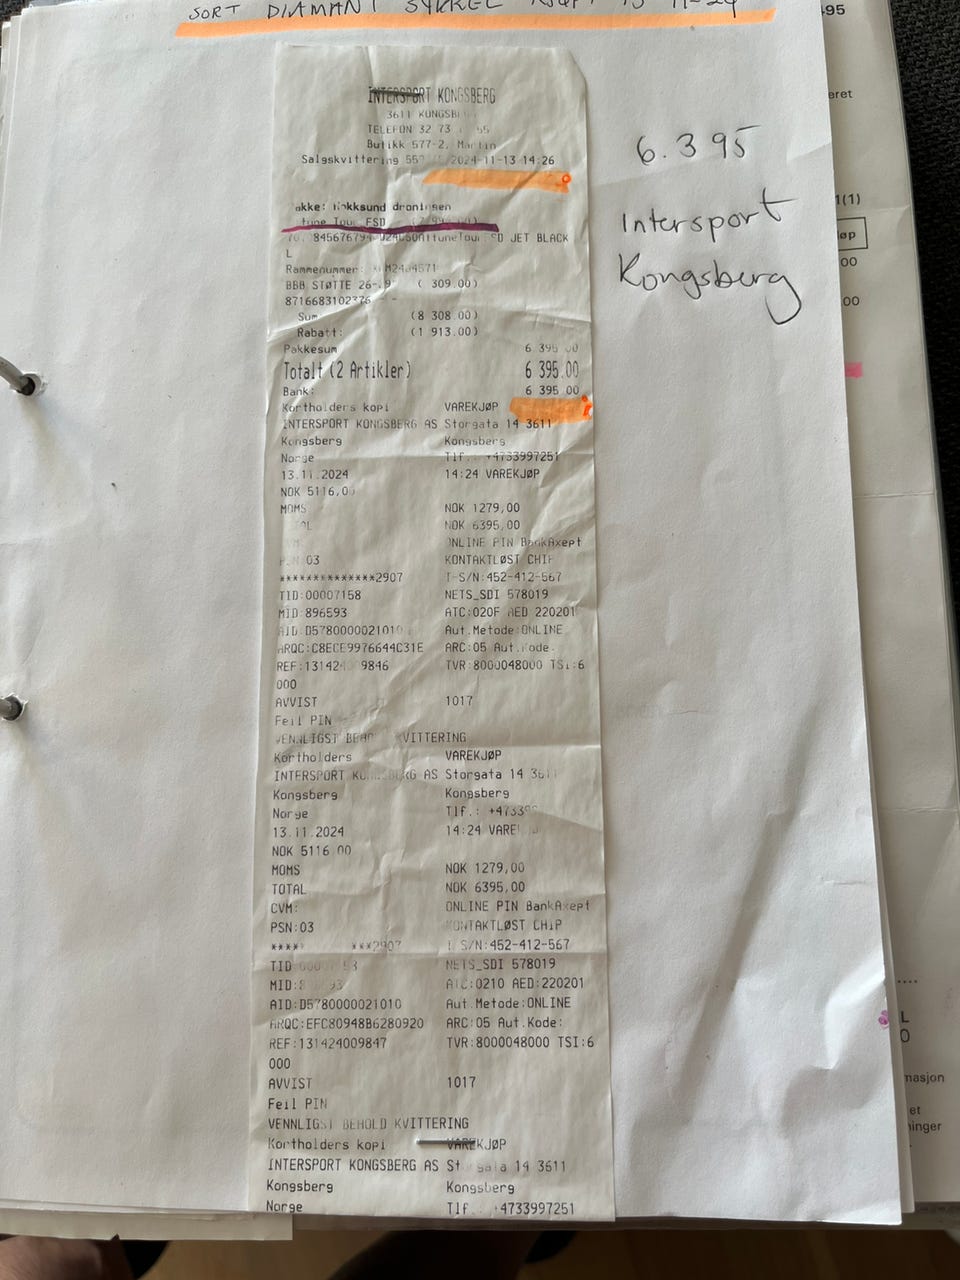 SORT DIAMANT SYKKEL KJØPT 13-11-24
INTERSPORT KONGSBERG
3611 KONGSBERG
TELEFON 32 73 55
Butikk 577-2, Martin
Salgskvittering 2024-11-13 14:26
6.395
Intersport
Kongsberg
akke: Hokksund droningen
tune Tour FSD
JET BLACK
L
Rammenummer:
BBB STØTTE 26- ( 309.00)
Sum (8 308.00)
Rabatt: (1 913.00)
Pakkesum 6 395 00
Totalt (2 Artikler) 6 395.00
Bank: 6 395 00
Kortholders kopi VAREKJØP
INTERSPORT KONGSBERG AS Storgata 14 3611
Kongsberg Kongsberg
Norge Tlf.: +4733997251
13.11.2024 14:24 VAREKJØP
NOK 5116,0
MOMS NOK 1279,00
NOK 6395,00
ONLINE PIN BankAxept
03 KONTAKTLØST CHIP
**************2907 T-S/N:452-412-567
TID:00007158 NETS_SDI 578019
MID:896593 ATC:020F AED 220201
AID D5780000021010 Aut.Metode:ONLINE
ARQC:C8ECE9976644C31E ARC:05 Aut.Kode.
REF:13142 9846 TVR:8000048000 TSI:6
000
AVVIST 1017
Feil PIN
VENNLIGST BEHO KVITTERING
Kortholders VAREKJØP
INTERSPORT KONGSBERG AS Storgata 14 3611
Kongsberg Kongsberg
Norge Tlf.: +4733
13.11.2024 14:24 VARE
NOK 5116 00
MOMS NOK 1279,00
TOTAL NOK 6395,00
CVM: ONLINE PIN BankAxept
PSN:03 KONTAKTLØST CHIP
**** ***2907 T S/N:452-412-567
TID NETS_SDI 578019
MID: 93 ATC:0210 AED:220201
AID:D5780000021010 Aut.Metode:ONLINE
ARQC:EFC80948B6280920 ARC:05 Aut.Kode:
REF:131424009847 TVR:8000048000 TSI:6
000
AVVIST 1017
Feil PIN
VENNLIGST BEHOLD KVITTERING
Kortholders kopi VAREKJØP
INTERSPORT KONGSBERG AS Storgata 14 3611
Kongsberg Kongsberg
Norge Tlf.: +4733997251